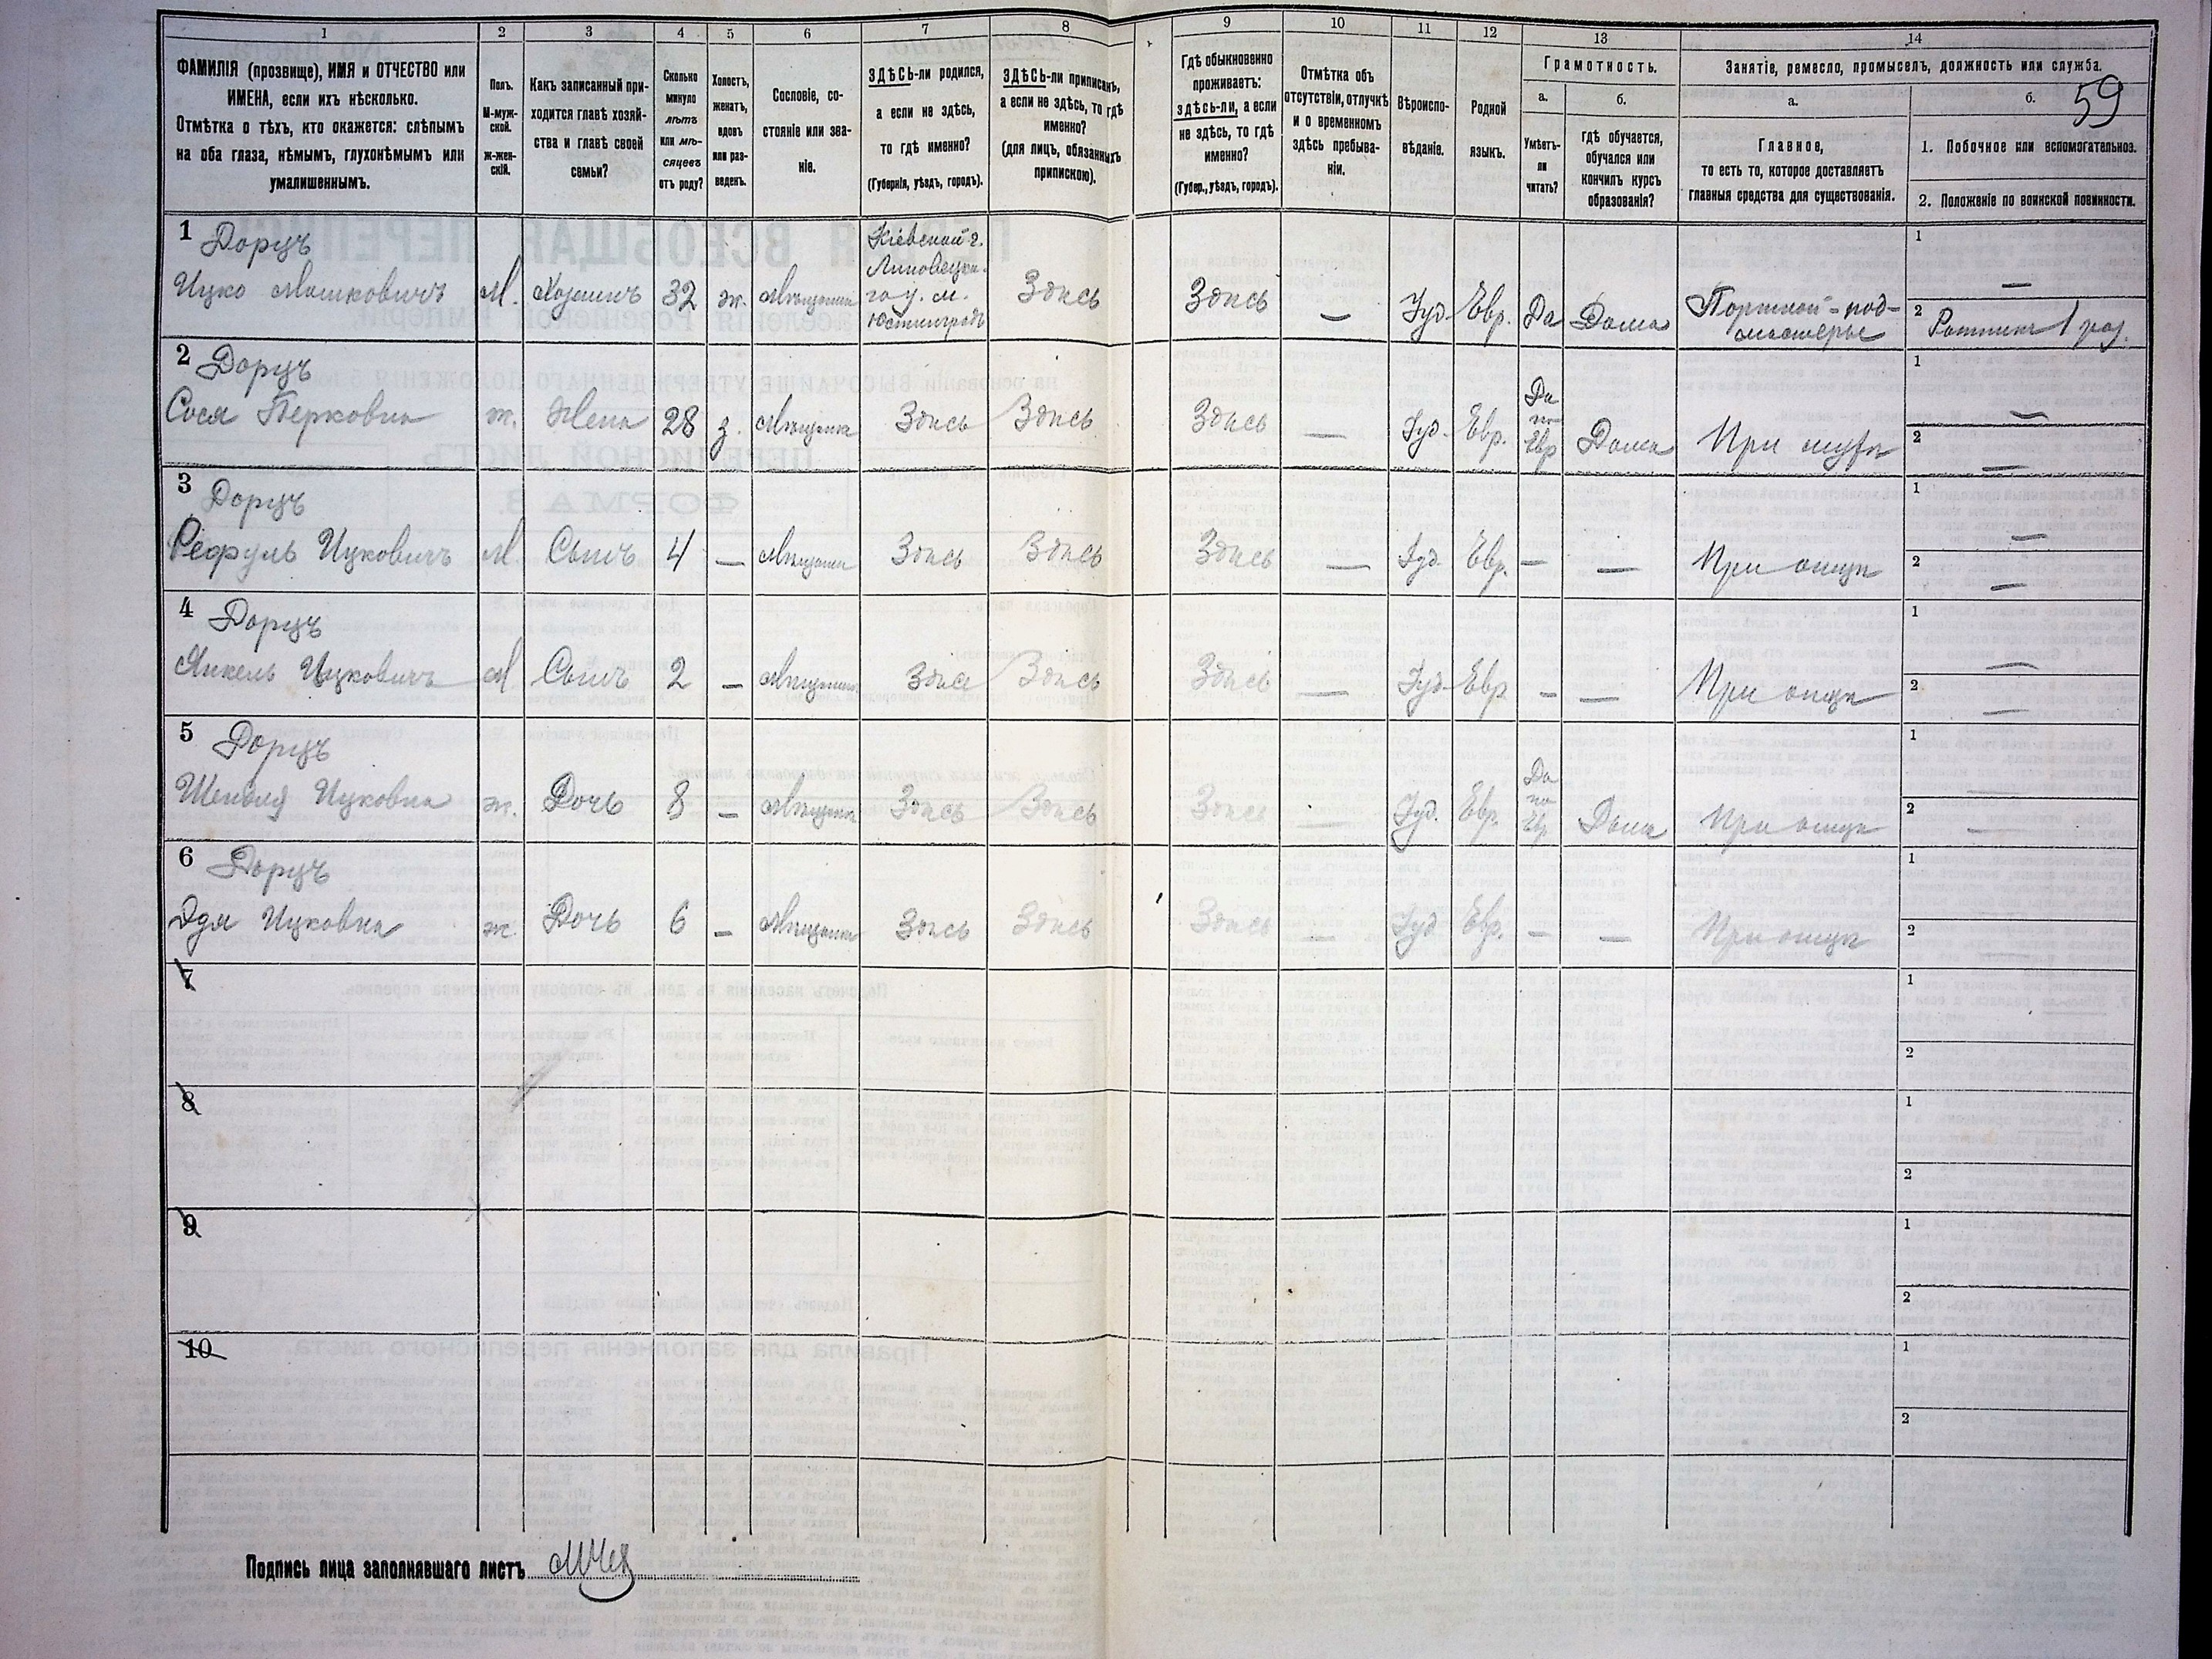 1
2
3
4
5
6
7
8
9
10
11
12
13
14
ФАМИЛІЯ (прозвище), ИМЯ и ОТЧЕСТВО или
ИМЕНА, если ихъ нѣсколько.
Отмѣтка о тѣхъ, кто окажется: слѣпымъ
на оба глаза, нѣмымъ, глухонѣмымъ или
умалишеннымъ.
Полъ.
М-муж-
ской.
Ж-жен-
скій.
Какъ записанный при-
ходится главѣ хозяй-
ства и главѣ своей
семьи?
Сколько
минуло
лѣтъ
или мѣ-
сяцевъ
отъ роду?
Холостъ,
женатъ,
вдовъ
или раз-
веденъ.
Сословіе, со-
стояніе или зва-
ніе.
ЗДѢСЬ-ли родился,
а если не здѣсь,
то гдѣ именно?
(Губернія, уѣздъ, городъ).
ЗДѢСЬ-ли приписанъ,
а если не здѣсь, то гдѣ
именно?
(для лицъ, обязанныхъ
припискою).
Гдѣ обыкновенно
проживаетъ:
здѣсь-ли, а если
не здѣсь, то гдѣ
именно?
(Губер., уѣздъ, городъ).
Отмѣтка объ
отсутствіи, отлучкѣ
и о временномъ
здѣсь пребыва-
ніи.
Вѣроиспо-
вѣданіе.
Родной
языкъ.
Грамотность.
а.
Умѣетъ-
ли
читать?
б.
гдѣ обучается,
обучался или
кончилъ курсъ
образованія?
Занятіе, ремесло, промыселъ, должность или служба.
59
а.
Главное,
то есть то, которое доставляетъ
главныя средства для существованія.
б.
1. Побочное или вспомогательное.
2. Положеніе по воинской повинности.
1 Дорцъ
Ицко Мошковичъ М. Хозяинъ 32 ж. Мѣщанинъ
Кіевской г.
Липовецка-
го у. м.
Юстинградъ
Здѣсь Здѣсь — Іуд. Евр. Да Дома
Портной-под-
мастерье
1 —
2 Ратникъ 1 раз.
2 Дорцъ
Сося Берковна ж. Жена 28 з. Мѣщанка Здѣсь Здѣсь Здѣсь — Іуд. Евр.
Да
по
Евр
Дома При мужѣ
1 —
2 —
3 Дорцъ
Рефуль Ицковичъ М. Сынъ 4 — Мѣщанин Здѣсь Здѣсь Здѣсь — Іуд. Евр. — — При отцѣ
1 —
2 —
4 Дорцъ
Янкель Ицковичъ М Сынъ 2 — Мѣщанин Здѣсь Здѣсь Здѣсь — Іуд. Евр. — — При отцѣ
1 —
2 —
5 Дорцъ
Шендля Ицковна ж. Дочь 8 — Мѣщанка Здѣсь Здѣсь Здѣсь — Іуд. Евр.
Да
по
Евр
Дома При отцѣ
1
2 —
6 Дорцъ
Эдя Ицковна ж. Дочь 6 — Мѣщанка Здѣсь Здѣсь Здѣсь — Іуд. Евр. — — При отцѣ
1
2 —
7
1
2
8
1
2
9
1
2
10
1
2
Подпись лица заполнявшаго листъ